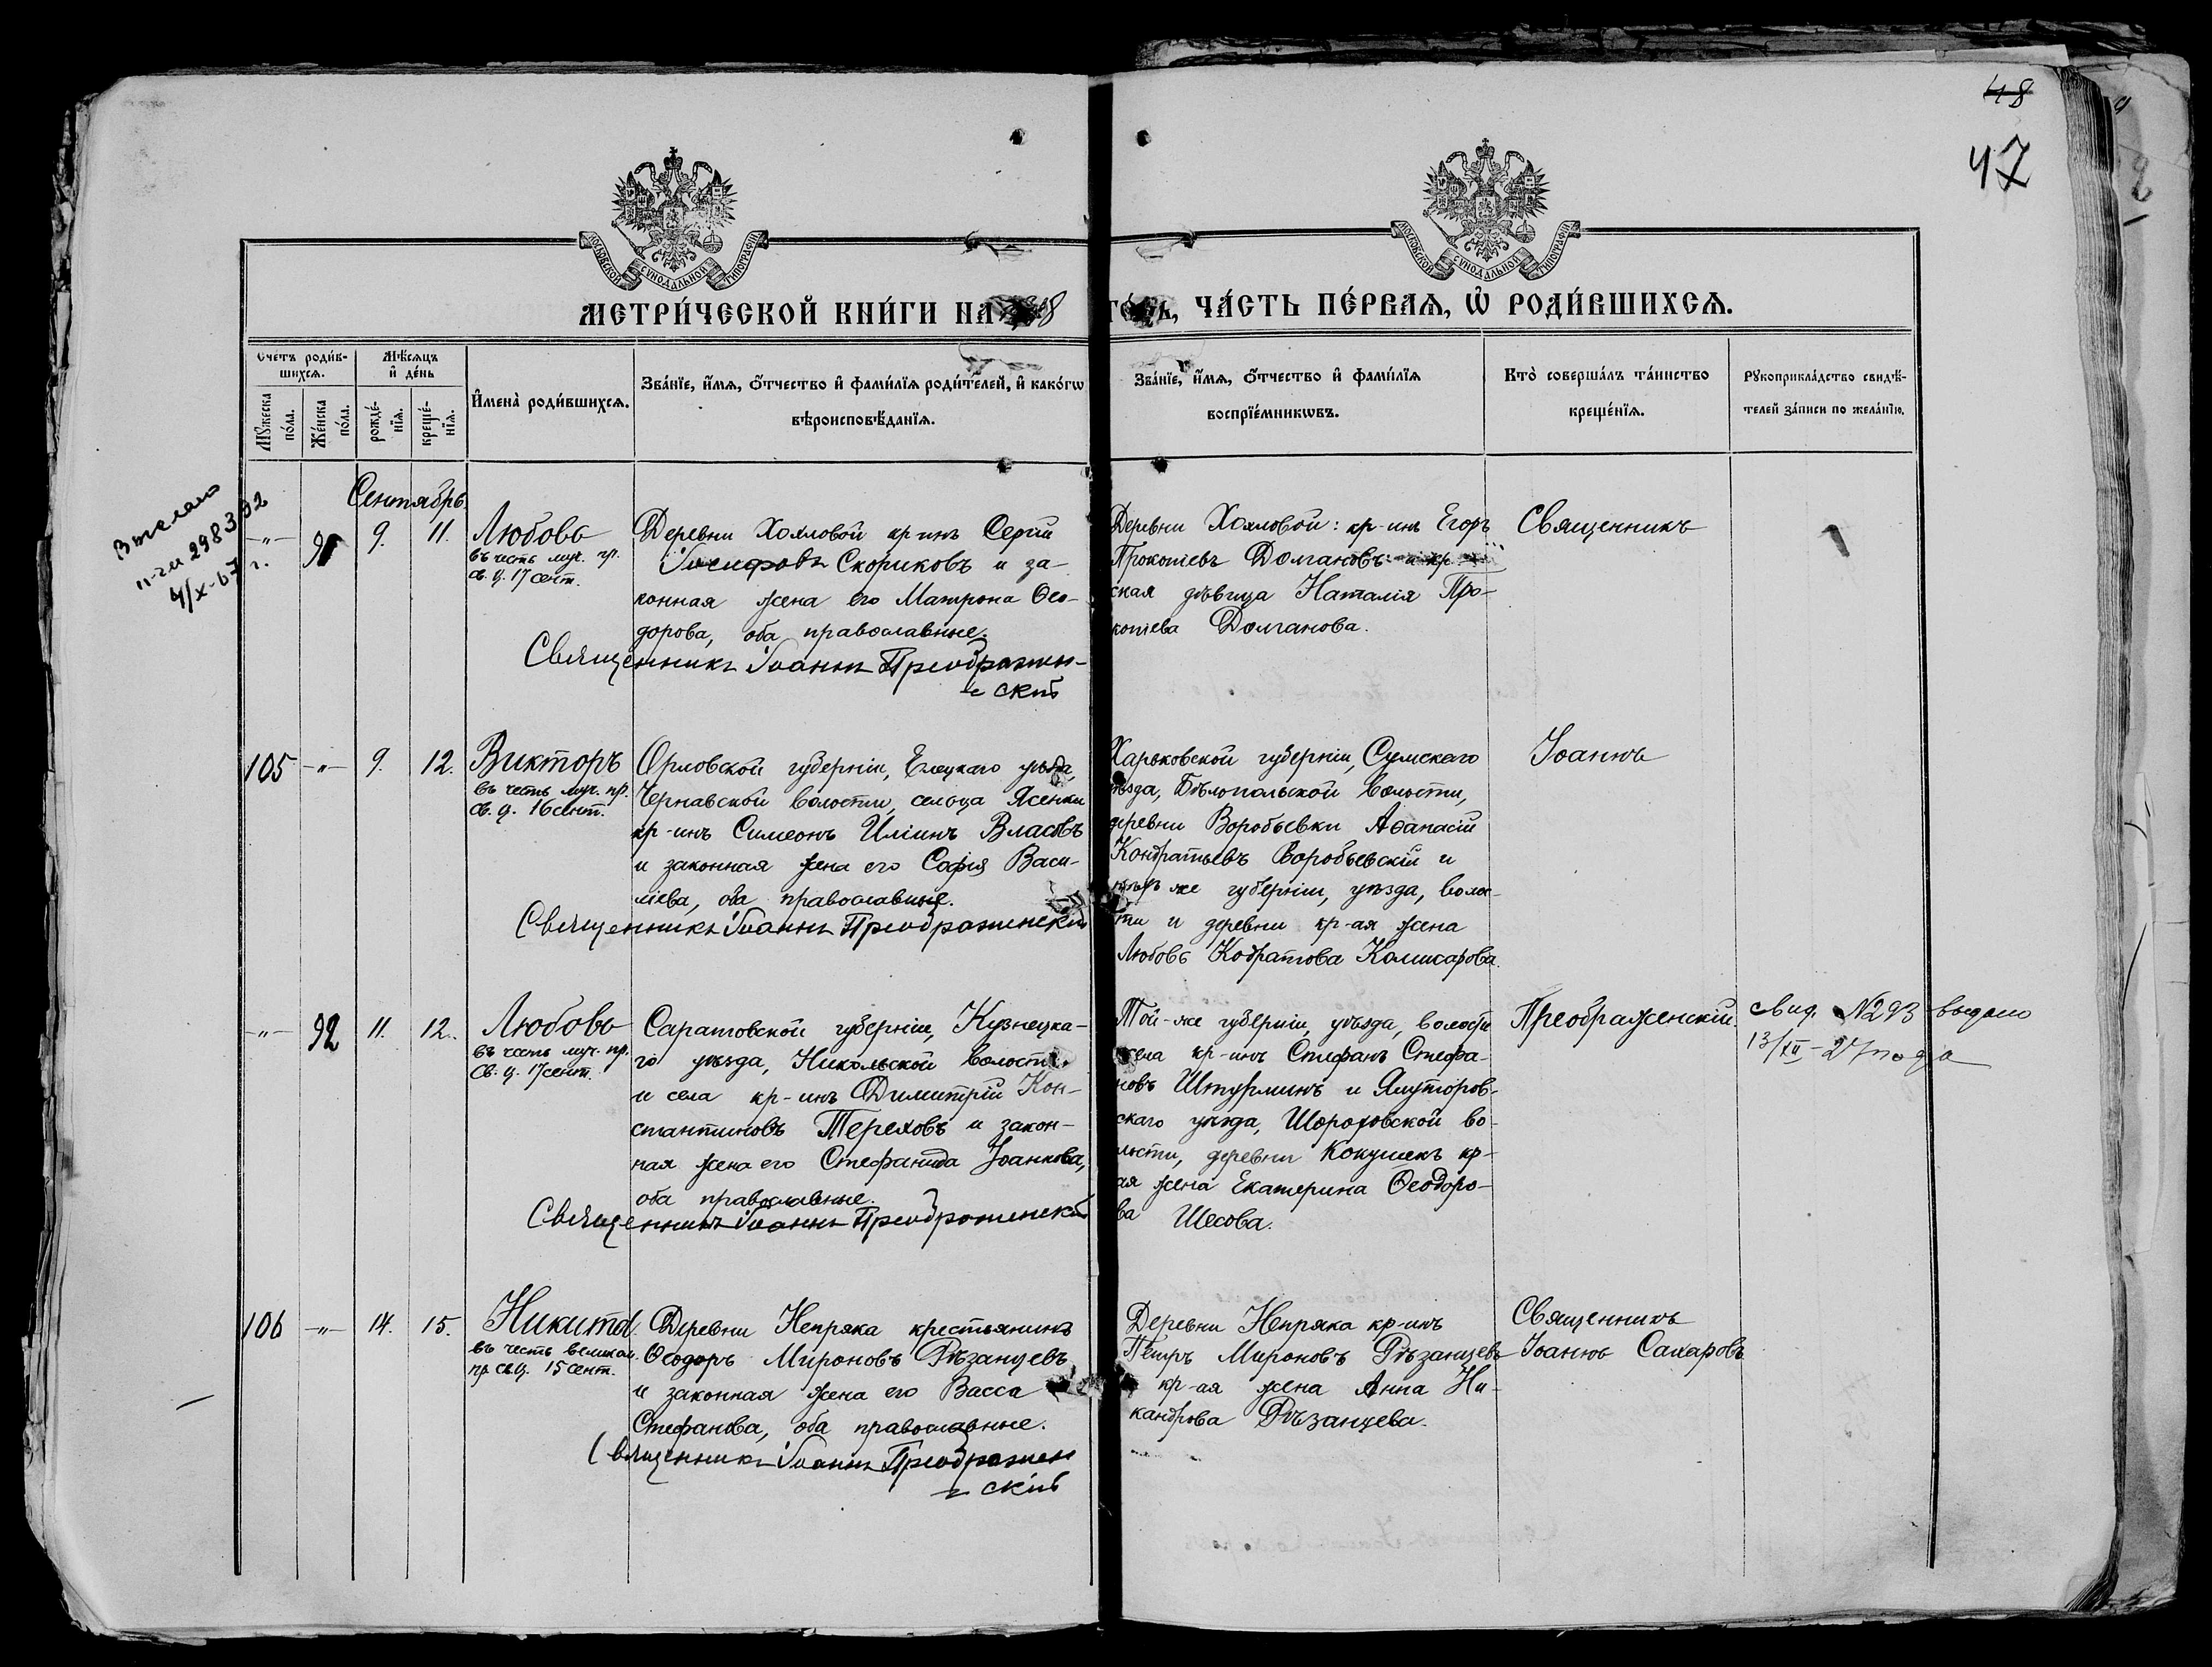 48
47
МОСКОВСКОЙ СѴНОДАЛЬНОЙ ТИПОГРАФІИ
МОСКОВСКОЙ СѴНОДАЛЬНОЙ ТИПОГРАФІИ
МЕТРИ́ЧЕСКОЙ КНИ́ГИ НА 8
ЧА́СТЬ ПЕ́РВАѦ, Ѡ҆ РОДИ́ВШИХСѦ.
Сче́тъ роди́в-
шихсѧ.
Мꙋ́жеска
по́ла.
Же́нска
по́ла.
Мѣ́сѧцъ
и҆ де́нь
рожде́-
нїѧ.
креще́-
нїѧ.
И҆мена̀ роди́вшихсѧ.
Зва́нїе, и҆́мѧ, ѻ҆́тчество и҆ фами́лїѧ роди́телей, и҆ како́гѡ
вѣроисповѣ́данїѧ.
Зва́нїе, и҆́мѧ, ѻ҆́тчество и҆ фами́лїѧ
воспрїе́мникѡвъ.
Кто̀ соверша́лъ та́инство
креще́нїѧ.
Рꙋкоприкла́дство свидѣ́-
телей за́писи по жела́нїю.
Выслано
298392
4/X-67 г.
Сентябрь.
-"- 91 9. 11. Любовь
въ честь муч. пр.
св. ц. 17 сент.
Деревни Хохловой кр-инъ Сергій
Іосифовъ Скориковъ и за-
конная жена его Матрона Ѳео-
дорова, оба православные.
Священникъ Іоаннъ Преображен-
скій
Деревни Хохловой: кр-инъ Егоръ
Прокопіевъ Долгановъ и кр-
ская дѣвица Наталія Про-
копіева Долганова.
Священникъ
105 -"- 9. 12. Викторъ
въ честь муч. пр.
св. ц. 16 сент.
Орловской губерніи, Елецкаго уѣзда,
Чернавской волости, сельца Ясенки
кр-инъ Симеонъ Иліинъ Власовъ
и законная жена его Софія Васи-
ліева, оба православные.
Священникъ Іоаннъ Преображенскій
Харьковской губерніи, Сумскаго
уѣзда, Бѣлопольской волости,
деревни Воробьевки Аѳанасій
Кондратьевъ Воробьевскій и
той же губерніи, уѣзда, волос-
ти и деревни кр-ая жена
Любовь Кодратова Комисарова.
Іоаннъ
-"- 92 11. 12. Любовь
въ честь муч. пр.
св. ц. 17 сент.
Саратовской губерніи, Кузнецка-
го уѣзда, Никольской волости
и села кр-инъ Димитрій Кон-
стантиновъ Тереховъ и закон-
ная жена его Стефанида Іоаннова,
оба православные.
Священникъ Іоаннъ Преображенскій
Той-же губерніи, уѣзда, волости
села кр-инъ Стефанъ Стефа-
новъ Штурминъ и Ялуторов-
скаго уѣзда, Шороховской во-
лости, деревни Кокушекъ кр-
ая жена Екатерина Ѳеодоро-
ва Шесова.
Преображенскій.
свид. №293 выдано
13/XII-27 года
106 -"- 14. 15. Никита
въ честь великом.
пр. св. ц. 15 сент.
Деревни Непряка крестьянинъ
Ѳеодоръ Мироновъ Рѣзанцевъ
и законная жена его Васса
Стефанова, оба православные.
Священникъ Іоаннъ Преображен
скій
Деревни Непряка кр-инъ
Петръ Мироновъ Рѣзанцевъ
кр-ая жена Анна Ни-
кандрова Рѣзанцева.
Священникъ
Іоаннъ Сахаровъ